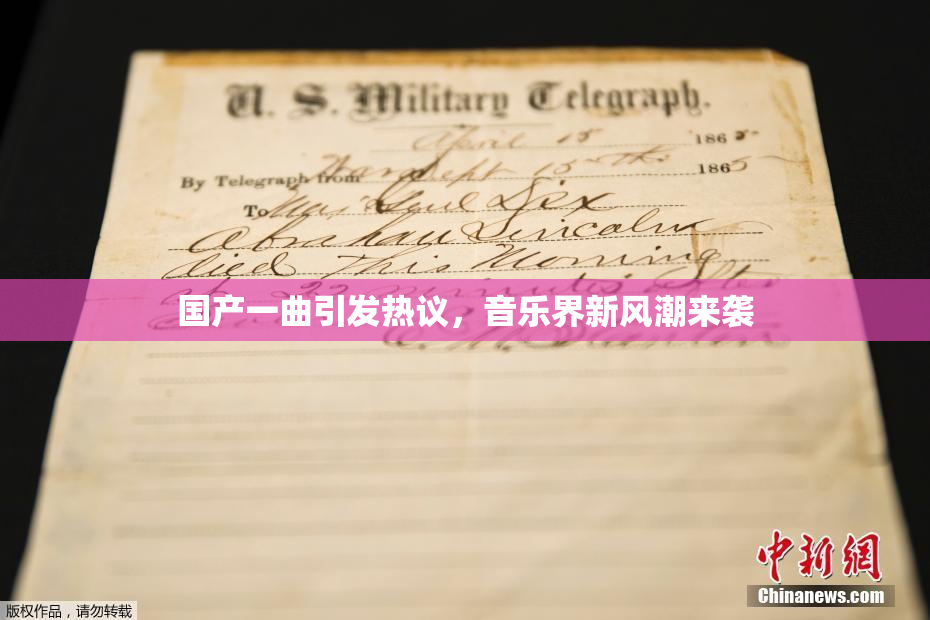 U. S. Military Telegraph.
April 15 1865
By Telegraph from War Dept 15th 1865
To Maj Genl Dix
Abraham Lincoln
died This Morning
at 22 minutes after
国产一曲引发热议，音乐界新风潮来袭
中新网
Chinanews.com
版权作品，请勿转载